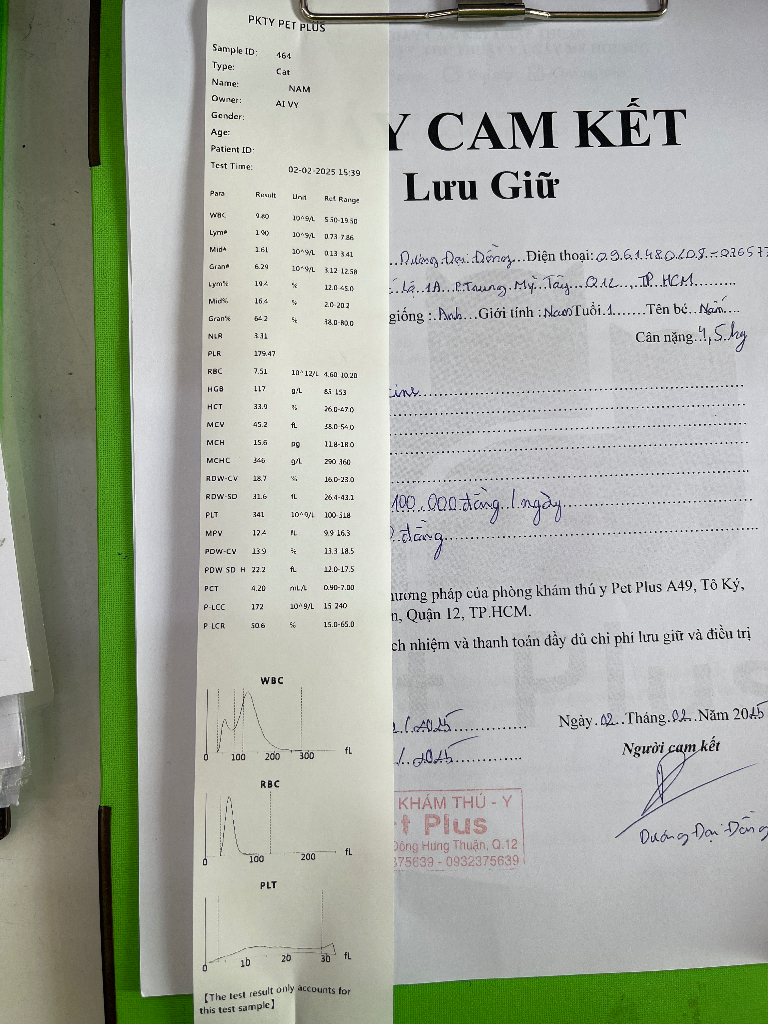 PKTY PET PLUS
Sample ID: 464
Type: Cat
Name: NAM
Owner: AI VY
Gender:
Age:
Patient ID:
Test Time: 02-02-2025 15:39
Para Result Unit Ref Range
WBC 9.80 10^9/L 5.50-19.50
Lym# 1.90 10^9/L 0.73-7.86
Mid# 1.61 10^9/L 0.13-3.41
Gran# 6.29 10^9/L 3.12-12.58
Lym% 19.4 % 12.0-45.0
Mid% 16.4 % 2.0-20.2
Gran% 64.2 % 38.0-80.0
NLR 3.31
PLR 179.47
RBC 7.51 10^12/L 4.60-10.20
HGB 117 g/L 85-153
HCT 33.9 % 26.0-47.0
MCV 45.2 fL 38.0-54.0
MCH 15.6 pg 11.8-18.0
MCHC 346 g/L 290-360
RDW-CV 18.7 % 16.0-23.0
RDW-SD 31.6 fL 26.4-43.1
PLT 341 10^9/L 100-518
MPV 12.4 fL 9.9-16.3
PDW-CV 13.9 % 13.3-18.5
PDW-SD H 22.2 fL 12.0-17.5
PCT 4.20 mL/L 0.90-7.00
P-LCC 172 10^9/L 15-240
P-LCR 50.6 % 15.0-65.0
WBC
0 100 200 300 fL
RBC
0 100 200 fL
PLT
0 10 20 30 fL
【The test result only accounts for
this test sample】
Y CAM KẾT
Lưu Giữ
Dương Đại Đồng Điện thoại:
1A P.Trung Mỹ Tây Q12, TP.HCM
giống: Anh Giới tính: Nam Tuổi 1 Tên bé
Cân nặng 4,5kg
100.000 đồng / ngày
đồng
hương pháp của phòng khám thú y Pet Plus A49, Tô Ký,
n, Quận 12, TP.HCM.
ch nhiệm và thanh toán đầy đủ chi phí lưu giữ và điều trị
/2025
Ngày 02 Tháng 02 Năm 2025
/2025
Người cam kết
KHÁM THÚ - Y
t Plus
Đông Hưng Thuận, Q.12
375639 - 0932375639
Dương Đại Đồng